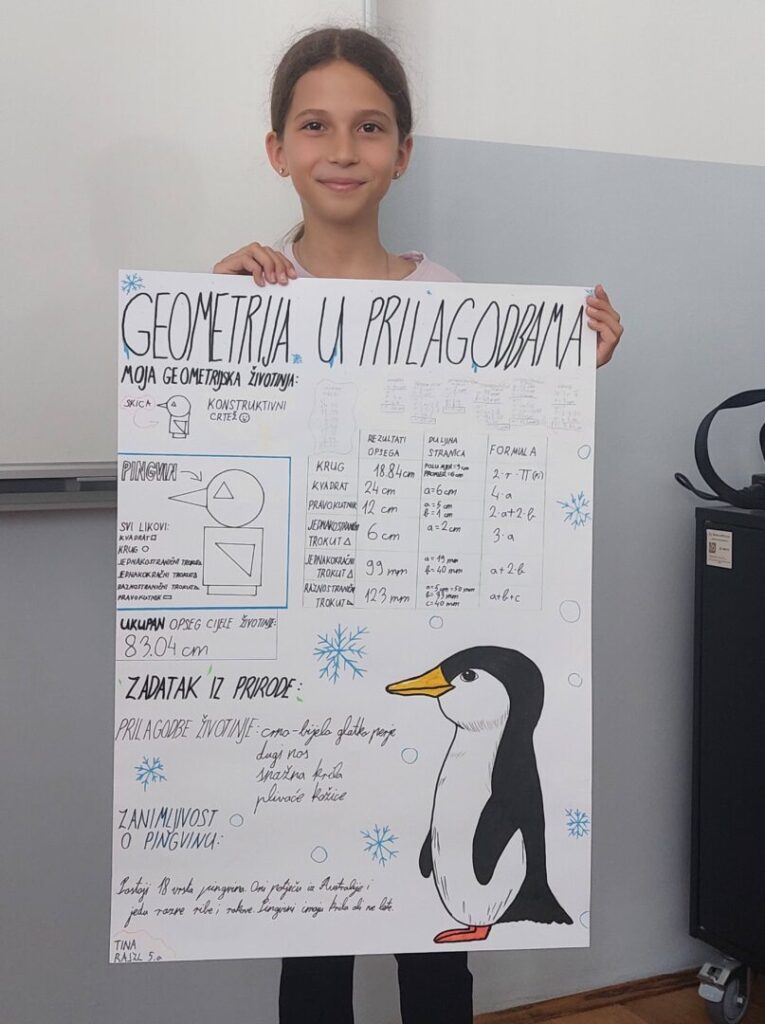 GEOMETRIJA U PRILAGODBAMA
MOJA GEOMETRIJSKA ŽIVOTINJA:
SKICA
KONSTRUKTIVNI
CRTEŽ
PINGVIN
SVI LIKOVI:
KVADRAT
KRUG
JEDNAKOSTRANIČNI TROKUT
JEDNAKOKRAČNI TROKUT
RAZNOSTRANIČNI TROKUT
PRAVOKUTNIK
REZULTATI OPSEGA DULJINA STRANICA FORMULA
KRUG 18.84 cm POLUMJER=3 cm PROMJER=6 cm 2·r·π(π)
KVADRAT 24 cm a=6 cm 4·a
PRAVOKUTNIK 12 cm a=5 cm b=1 cm 2·a+2·b
JEDNAKOSTRANIČNI TROKUT 6 cm a=2 cm 3·a
JEDNAKOKRAČNI TROKUT 99 mm a=19 mm b=40 mm a+2·b
RAZNOSTRANIČNI TROKUT 123 mm a=5 cm=50 mm b=33 mm c=40 mm a+b+c
UKUPAN OPSEG CIJELE ŽIVOTINJE:
83.04 cm
ZADATAK IZ PRIRODE:
PRILAGODBE ŽIVOTINJE: crno-bijelo glatko perje
dugi nos
snažna krila
plivaće kožice
ZANIMLJIVOST
O PINGVINU:
Postoji 18 vrsta pingvina. Oni potječu iz Australije i
jedu razne ribe i rakove. Pingvini imaju krila ali ne lete.
TINA
RAJZL 5.a